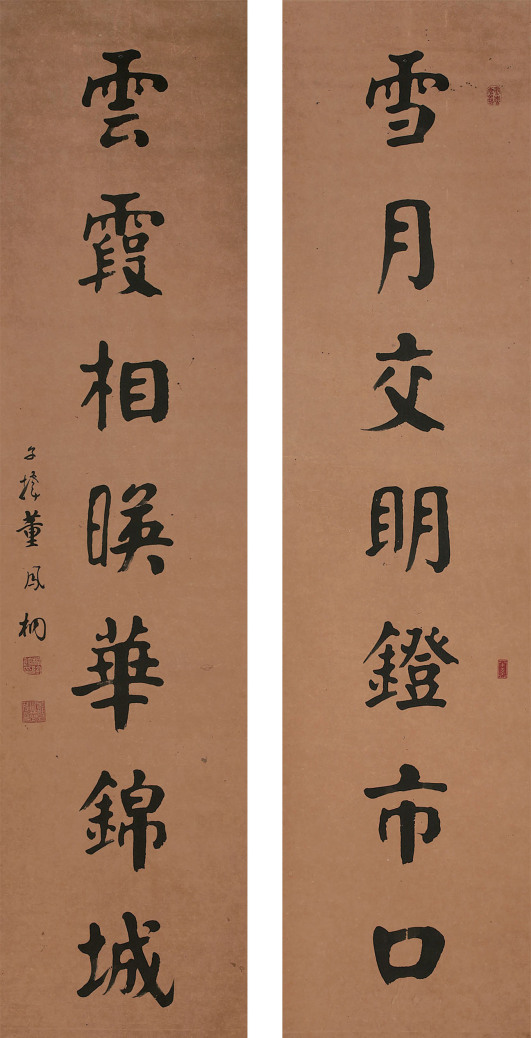 雪月交明鐙市口
雲霞相暎華錦城
董鳳桐